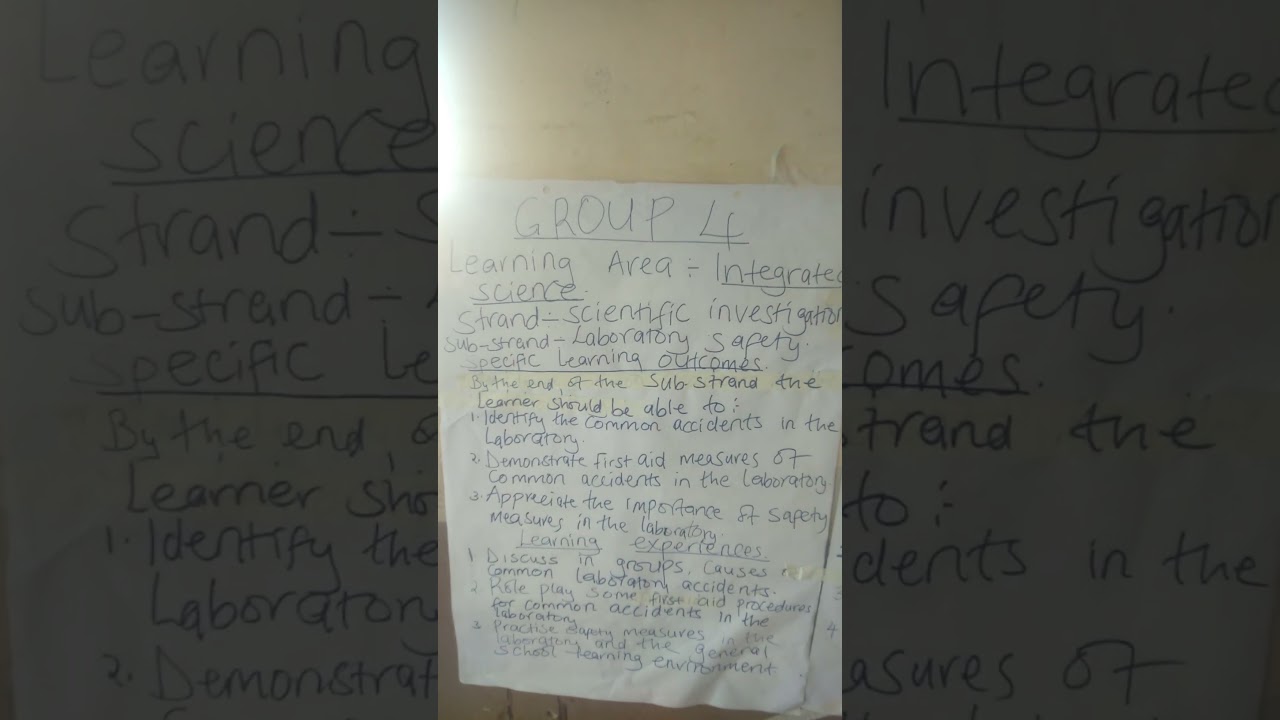 GROUP 4
Learning Area :- Integrated
science.
Strand:- Scientific investigation
Sub-strand:- Laboratory Safety.
Specific Learning outcomes.
By the end of the Sub-strand the
Learner should be able to:-
1. Identify the common accidents in the
Laboratory.
2. Demonstrate first aid measures of
common accidents in the laboratory
3. Appreciate the importance of safety
measures in the laboratory.
Learning experiences.
1 Discuss in groups, causes
common laboratory accidents.
2 Role play some first aid procedures
for common accidents in the
laboratory
3 Practise safety measures in the
laboratory and the general
school learning environment
4